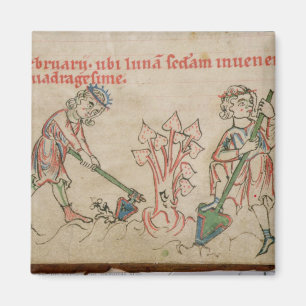 bruarii. ubi lunā scdam inuener
uadragesime.